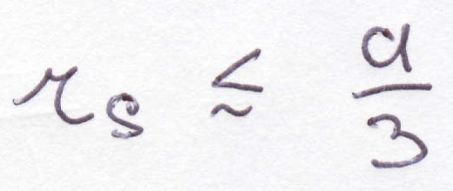 r_s ≲ a/3